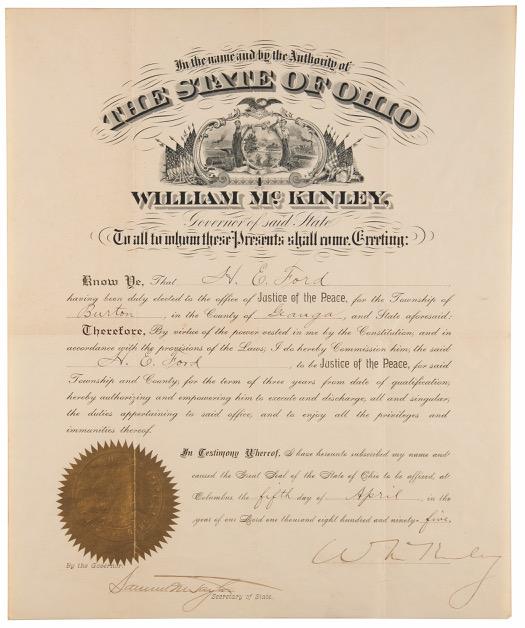 In the name and by the Authority of
THE STATE OF OHIO
WILLIAM McKINLEY,
Governor of said State
To all to whom these Presents shall come, Greeting:
Know Ye, That H. E. Ford
having been duly elected to the office of Justice of the Peace, for the Township of
Burton, in the County of Geauga, and State aforesaid:
Therefore, By virtue of the power vested in me by the Constitution, and in
accordance with the provisions of the Laws, I do hereby Commission him, the said
H. E. Ford, to be Justice of the Peace, for said
Township and County, for the term of three years from date of qualification,
hereby authorizing and empowering him to execute and discharge, all and singular,
the duties appertaining to said office, and to enjoy all the privileges and
immunities thereof.
In Testimony Whereof, I have hereunto subscribed my name and
caused the Great Seal of the State of Ohio to be affixed, at
Columbus, the fifth day of April, in the
year of our Lord one thousand eight hundred and ninety-five.
Wm McKinley
By the Governor:
Samuel M Taylor
Secretary of State.